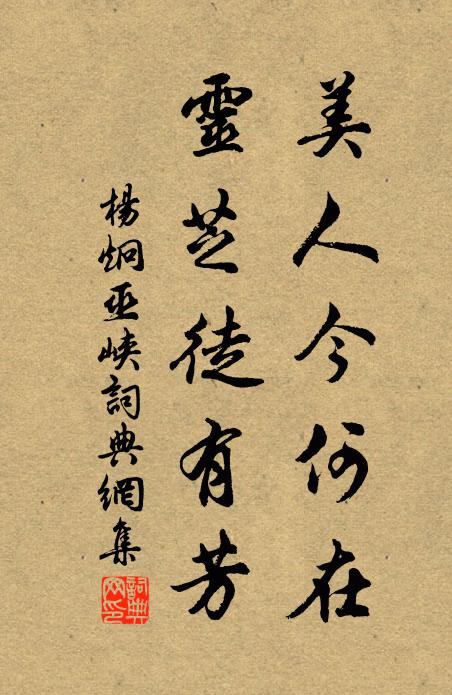 美人今何在
靈芝徒有芳
楊炯巫峽詞典網集
詞典网印